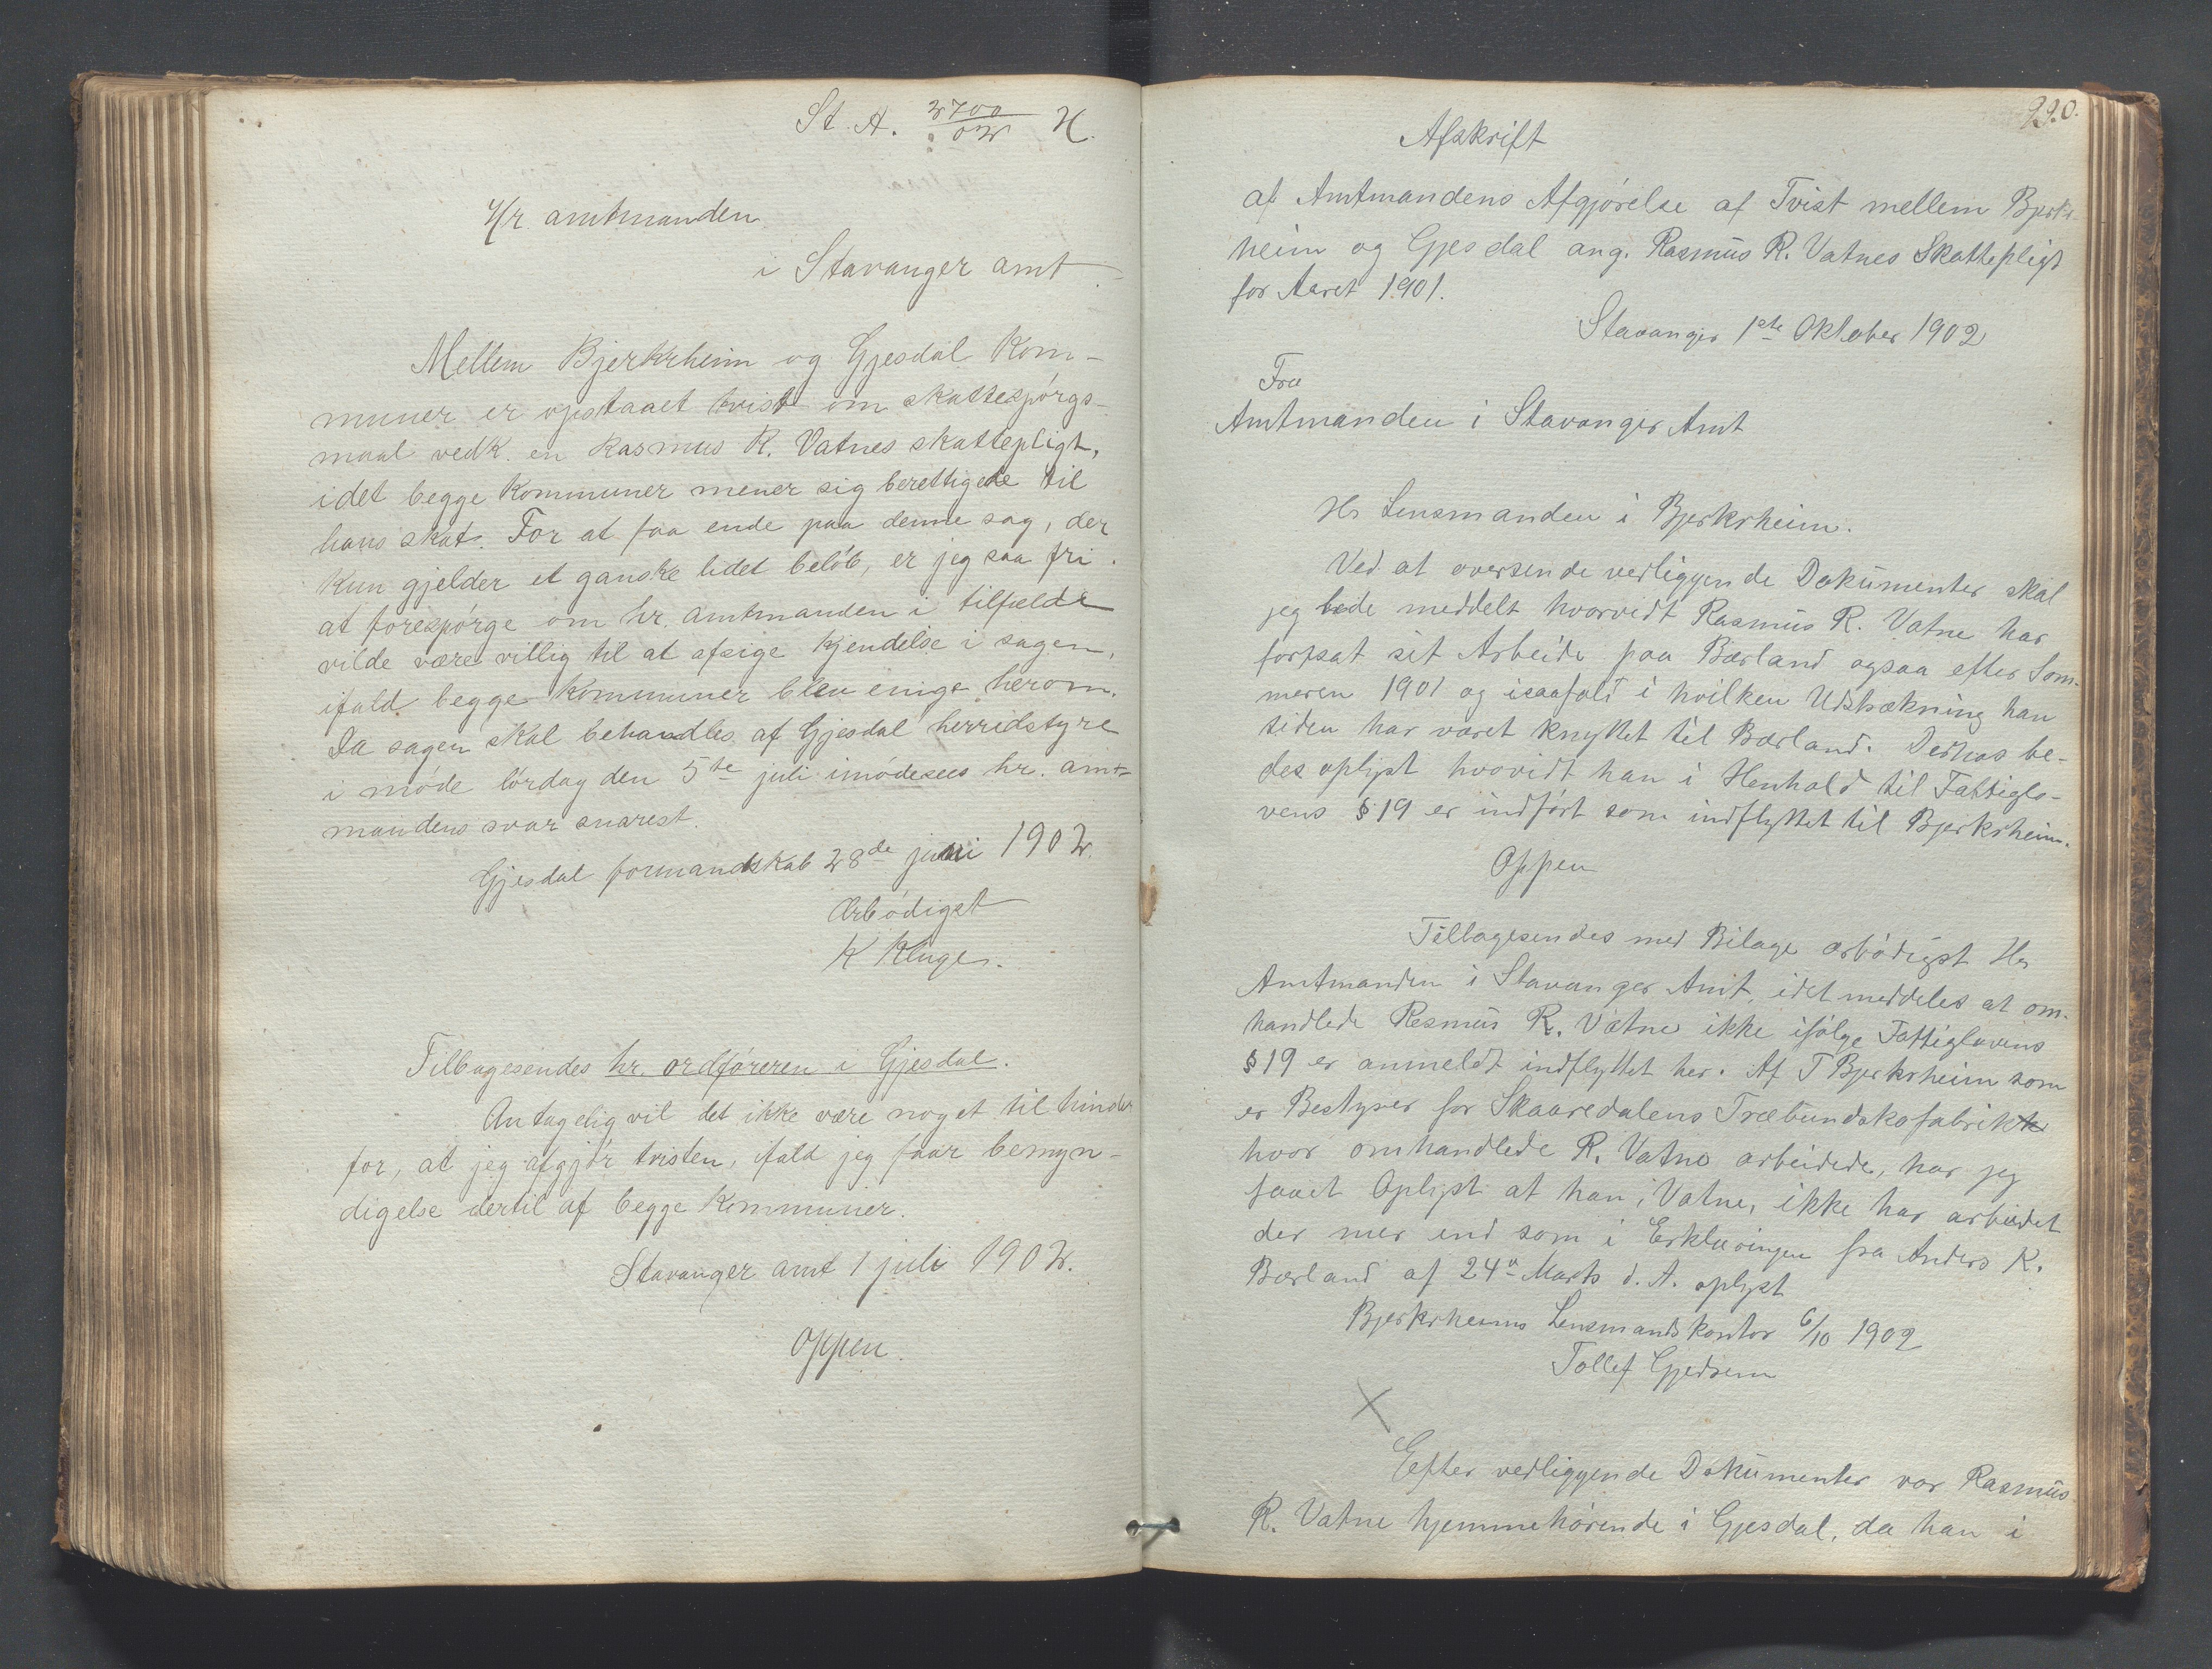 St. A. 2700/02 H.
Hr. amtmanden
i Stavanger amt.
Mellem Bjerkrheim og Gjesdal Kom-
muner er opstaaet tvist om skattespørgs-
maal vedk. en Rasmus R. Vatnes skattepligt,
idet begge Kommuner mener sig berettigede til
hans skat. For at faa ende paa denne sag, der
kun gjelder et ganske lidet beløb, er jeg saa fri
at forespørge om hr. amtmanden i tilfælde
vilde være villig til at afsige Kjendelse i sagen,
ifald begge Kommuner blev enige herom.
Da sagen skal behandles af Gjesdal herridstyre
i møde lørdag den 5te juli imødesees hr. amt-
mandens svar snarest.
Gjesdal formandskab 28de juni 1902.
Ærbødigst
K Kluge.
Tilbagesendes hr. ordføreren i Gjesdal.
Antagelig vil det ikke være noget til hinder
for, at jeg afgjør tvisten, ifald jeg faar bemyn-
digelse dertil af begge Kommuner.
Stavanger amt 1 juli 1902.
Oppen.
220.
Afskrift
af Amtmandens Afgjørelse af Tvist mellem Bjerkr-
heim og Gjesdal ang. Rasmus R. Vatnes Skattepligt
for Aaret 1901.
Stavanger 1ste Oktober 1902
Fra
Amtmanden i Stavanger Amt
Hr Lensmanden i Bjerkrheim.
Ved at oversende vedliggende Dokumenter skal
jeg bede meddelt hvorvidt Rasmus R. Vatne har
fortsat sit Arbeide paa Bærland ogsaa efter Som-
meren 1901 og isaafald i hvilken Udstrækning han
siden har været knyttet til Bærland. Derhos be-
des oplyst hvovidt han i Henhold til Fattiglo-
vens § 19 er indført som indflyttet til Bjerkrheim.
Oppen
Tilbagesendes med Bilage ærbødigst Hr
Amtmanden i Stavanger Amt, idet meddeles at om-
handlede Rasmus R. Vatne ikke ifølge Fattiglovens
§ 19 er anmeldt indflyttet her. Af T Bjerkrheim som
er Bestyrer for Skaaredalens Træbundskofabrik
hvor omhandlede R. Vatne arbeidede, har jeg
faaet Oplyst at han, Vatne, ikke har arbeidet
der mer end som i Erklæringen fra Anders K.
Bærland af 24de Marts d. A. oplyst
Bjerkrheims Lensmandskontor 6/10 1902
Tollef Gjedrem
Efter vedliggende Dokumenter var Rasmus
R. Vatne hjemmehørende i Gjesdal, da han i